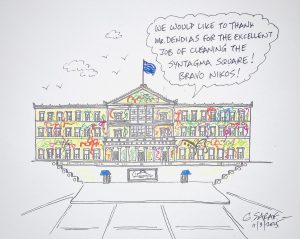 WE WOULD LIKE TO THANK
MR. DENDIAS FOR THE EXCELLENT
JOB OF CLEANING THE
SYNTAGMA SQUARE!
BRAVO NIKOS!